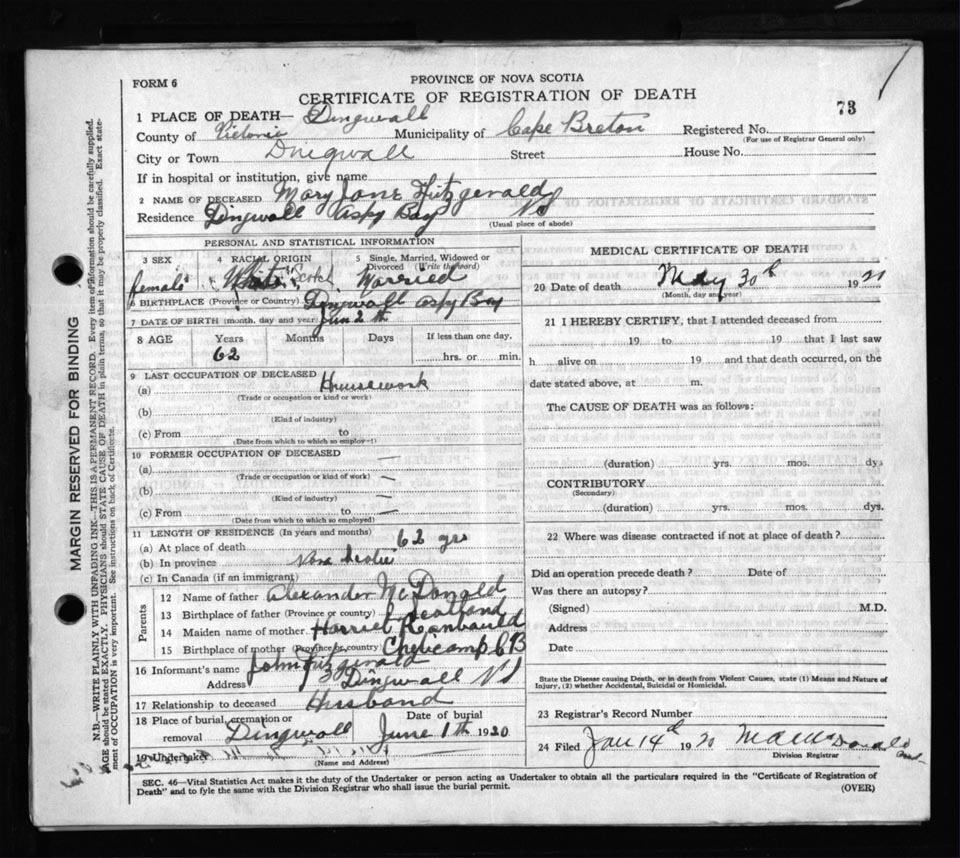 PROVINCE OF NOVA SCOTIA
FORM 6
CERTIFICATE OF REGISTRATION OF DEATH
73
1 PLACE OF DEATH— Dingwall
County of Victoria Municipality of Cape Breton Registered No.
(For use of Registrar General only)
City or Town Dingwall Street House No.
If in hospital or institution, give name
2 NAME OF DECEASED Mary Jane Fitzgerald
Residence Dingwall Aspy Bay NS
(Usual place of abode)
PERSONAL AND STATISTICAL INFORMATION
3 SEX 4 RACIAL ORIGIN 5 Single, Married, Widowed or Divorced (Write the word)
female White Scotch Married
6 BIRTHPLACE (Province or Country) Dingwall Aspy Bay
7 DATE OF BIRTH (month, day and year) Jun 2th
8 AGE Years Months Days If less than one day,
62 hrs. or min.
9 LAST OCCUPATION OF DECEASED
(a) Housework
(Trade or occupation or kind or work)
(b)
(Kind of industry)
(c) From to
(Date from which to which so employed)
10 FORMER OCCUPATION OF DECEASED —
(a)
(Trade or occupation or kind of work) —
(b)
(Kind of industry) —
(c) From to —
(Date from which to which so employed)
11 LENGTH OF RESIDENCE (In years and months)
(a) At place of death 62 yrs
(b) In province Nova Scotia
(c) In Canada (if an immigrant)
Parents
12 Name of father Alexander McDonald
13 Birthplace of father (Province or country) Scotland
14 Maiden name of mother Harriet
15 Birthplace of mother (Province or country) Cheticamp CB
16 Informant's name John Fitzgerald
Address Dingwall NS
17 Relationship to deceased Husband
18 Place of burial, cremation or removal Dingwall
Date of burial June 1th 1920
19 Undertaker
(Name and Address)
MEDICAL CERTIFICATE OF DEATH
20 Date of death May 30th 19
(Month, day and year)
21 I HEREBY CERTIFY, that I attended deceased from
19 to 19 that I last saw
h alive on 19 and that death occurred, on the
date stated above, at m.
The CAUSE OF DEATH was as follows:
(duration) yrs. mos. dys
CONTRIBUTORY
(Secondary)
(duration) yrs. mos. dys.
22 Where was disease contracted if not at place of death?
Did an operation precede death? Date of
Was there an autopsy?
(Signed) M.D.
Address
Date
State the Disease causing Death, or in death from Violent Causes, state (1) Means and Nature of
Injury, (2) whether Accidental, Suicidal or Homicidal.
23 Registrar's Record Number
24 Filed Jan 14th 19
Division Registrar
SEC. 46—Vital Statistics Act makes it the duty of the Undertaker or person acting as Undertaker to obtain all the particulars required in the "Certificate of Registration of
Death" and to fyle the same with the Division Registrar who shall issue the burial permit. (OVER)
MARGIN RESERVED FOR BINDING
N.B.—WRITE PLAINLY WITH UNFADING INK—THIS IS A PERMANENT RECORD. Every item of information should be carefully supplied.
AGE should be stated EXACTLY. PHYSICIANS should STATE CAUSE OF DEATH in plain terms, so that it may be properly classified. Exact state-
ment of OCCUPATION is very important. See instructions on back of Certificate.